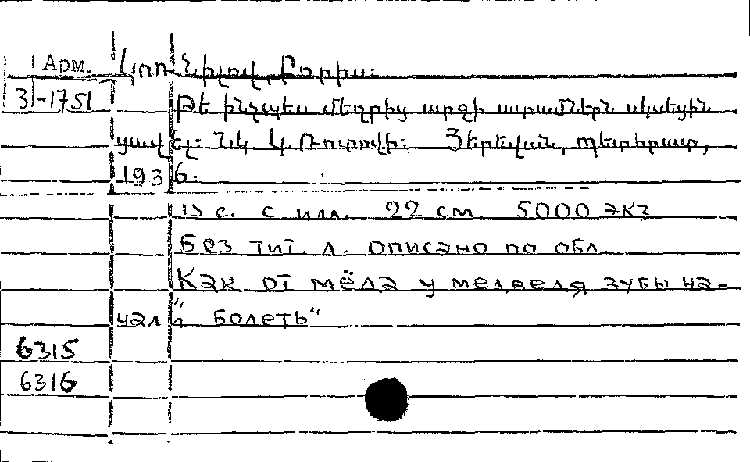 Арм. Կոռնիլով, Բորիս:
3-1751 Թե ինչպես մեղրից արջի ատամներն սկսեցին
ցավել: Նկ. Կ. Ռոտովի: Յերևան, Պետհրատ,
1936.
с. с илл. 22 см. 5000 экз
Без тит. л. описано по обл
Как от мёда у медведя зубы на-
чали болеть"
6315
6316